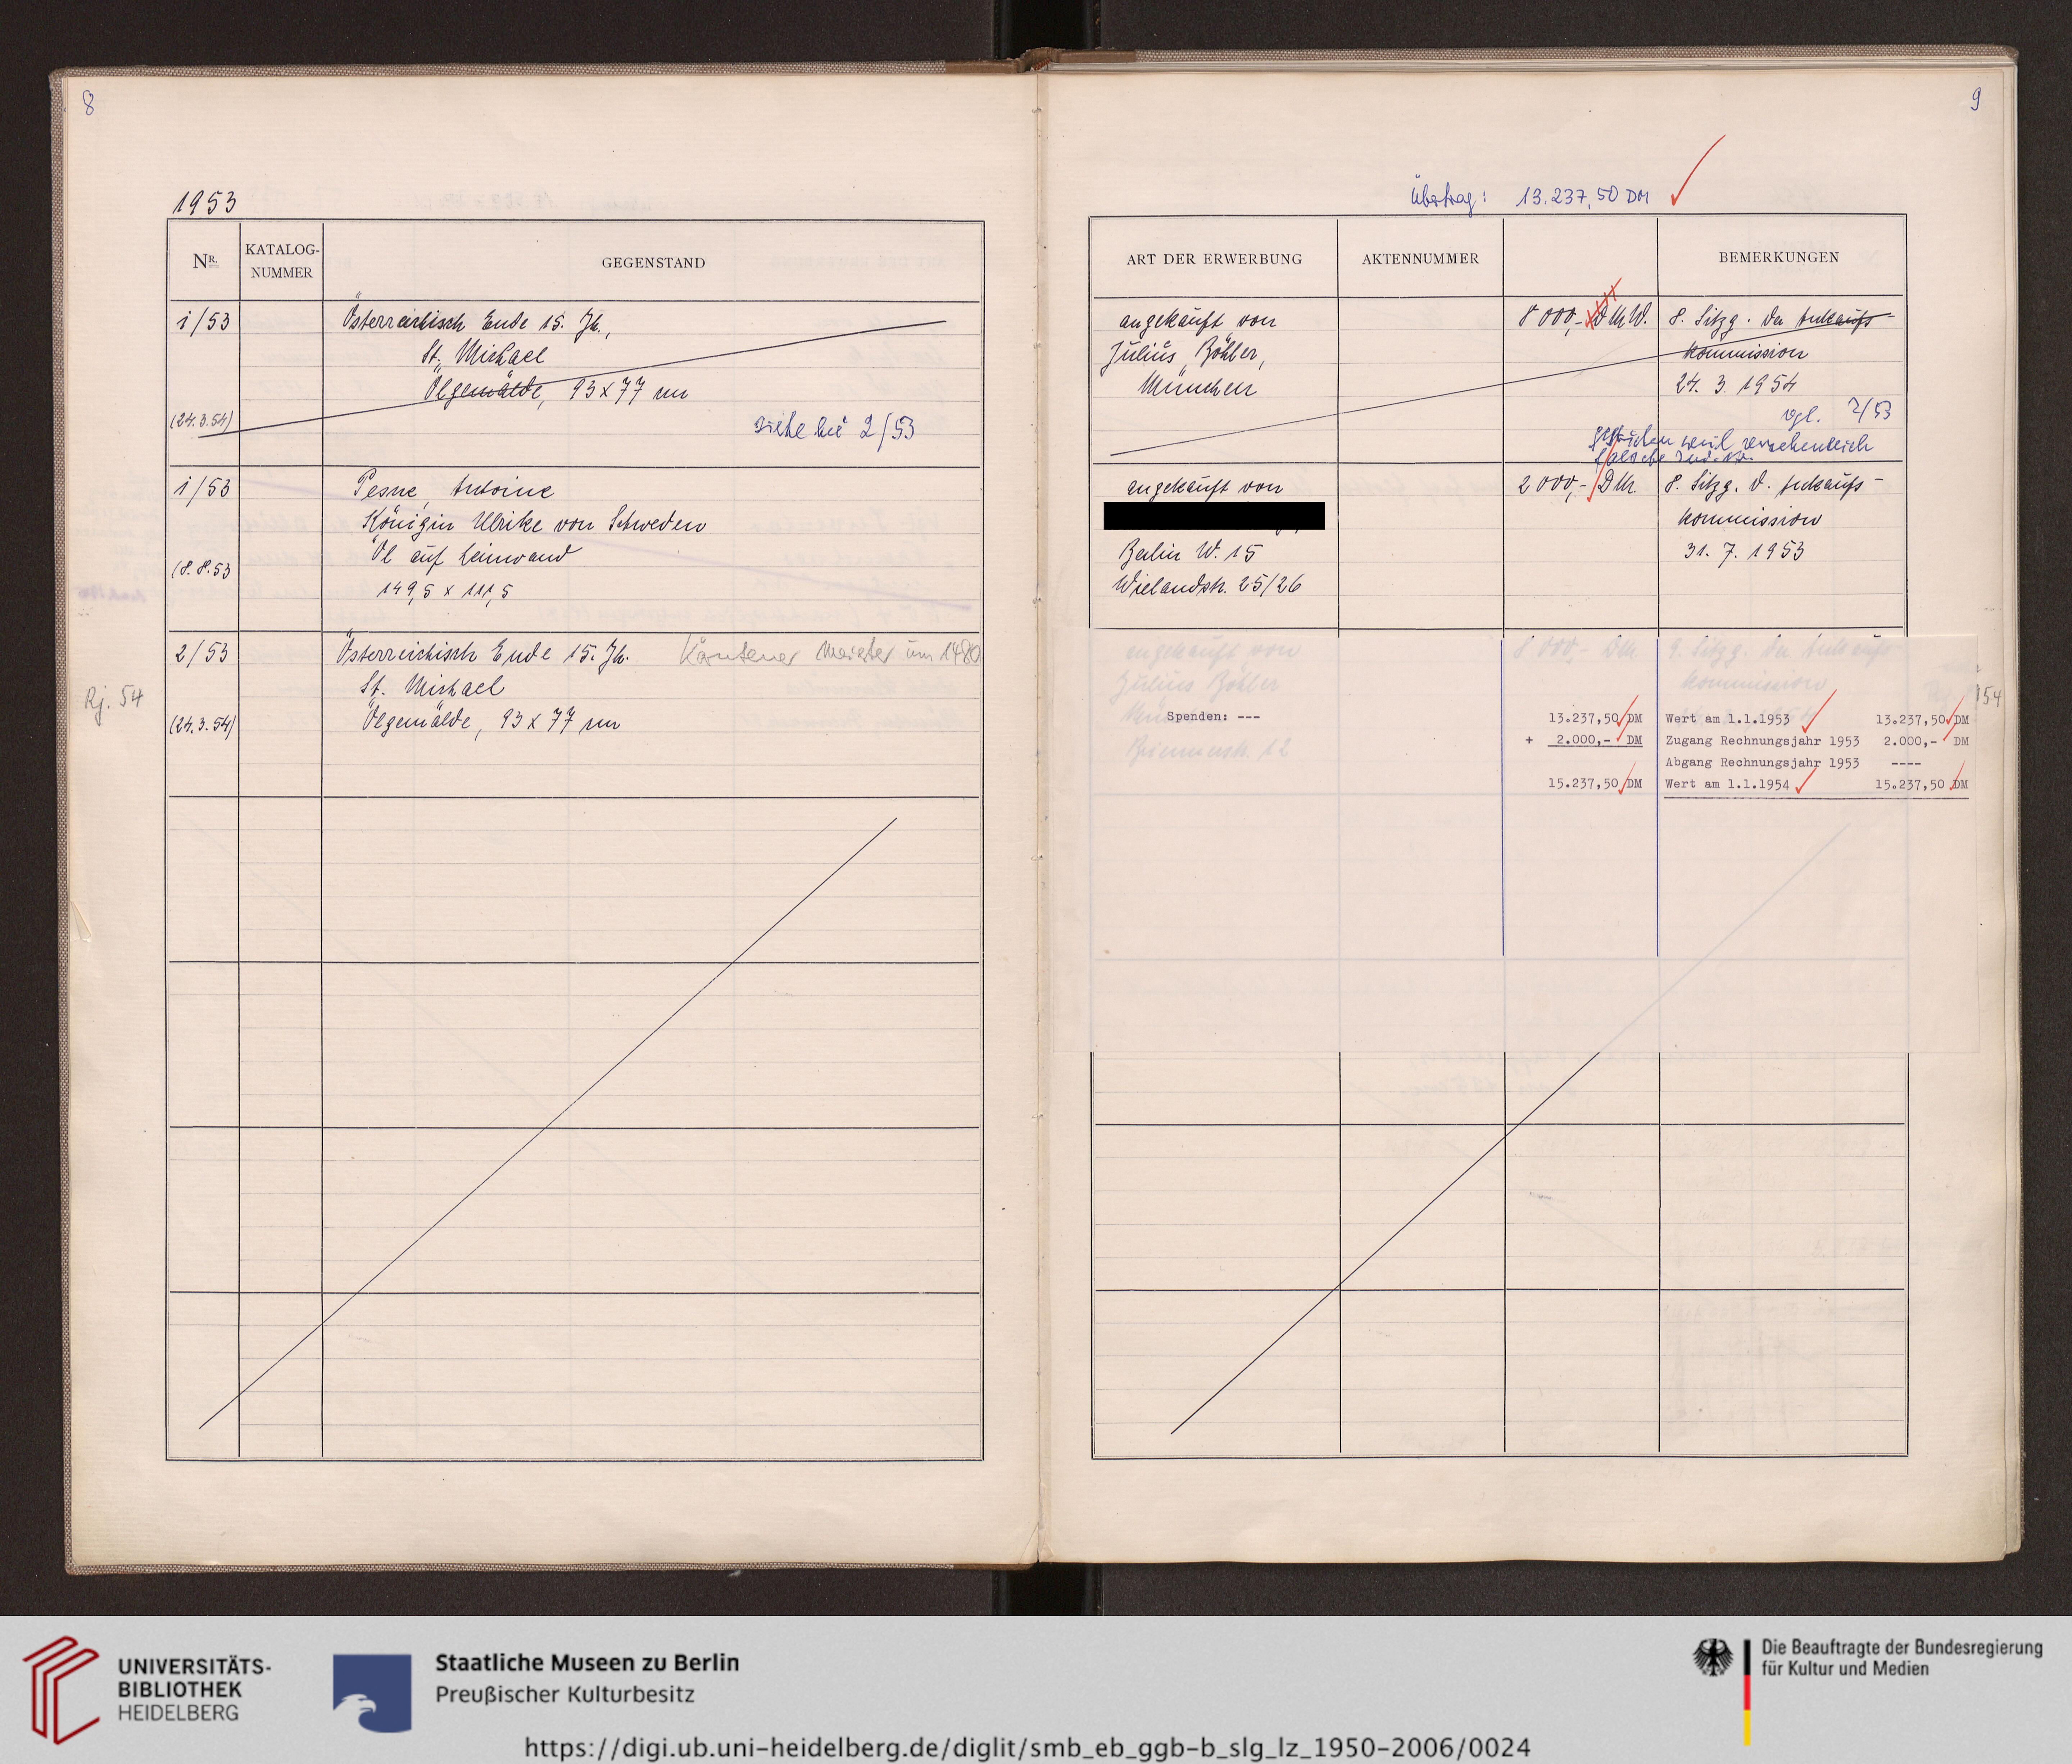 8
1953
NR.
KATALOG-
NUMMER
GEGENSTAND
1/53
Österreichisch Ende 15. Jh.,
St. Michael
Ölgemälde, 93 x 77 cm
(24.3.54)
siehe bei 2/53
1/53
Pesne, Antoine
Königin Ulrike von Schweden
Öl auf Leinwand
(8.8.53
149,5 x 111,5
2/53
Österreichisch Ende 15. Jh. Kärntener Meister um 1480
St. Michael
Rj. 54
(24.3.54)
Ölgemälde, 93 x 77 cm
9
Übertrag: 13.237,50 DM
ART DER ERWERBUNG
AKTENNUMMER
BEMERKUNGEN
angekauft von
8 000,- DMW.
8. Sitzg. der Ankaufs-
Julius Böhler,
kommission
München
24. 3. 1954
vgl. 2/53
gestrichen weil versehentlich
falsche Inv. Nr.
angekauft von
2 000,- DM.
8. Sitzg. d. Ankaufs-
kommission
Berlin W. 15
31. 7. 1953
Wielandstr. 25/26
angekauft von
8 000,- DM
9. Sitzg. der Ankaufs-
Julius Böhler
kommission
München
Briennerstr. 12
54
Spenden: ---
13.237,50 DM
Wert am 1.1.1953 13.237,50 DM
+ 2.000,- DM
Zugang Rechnungsjahr 1953 2.000,- DM
Abgang Rechnungsjahr 1953 ----
15.237,50 DM
Wert am 1.1.1954 15.237,50 DM
UNIVERSITÄTS-
BIBLIOTHEK
HEIDELBERG
Staatliche Museen zu Berlin
Preußischer Kulturbesitz
Die Beauftragte der Bundesregierung
für Kultur und Medien
https://digi.ub.uni-heidelberg.de/diglit/smb_eb_ggb-b_slg_lz_1950-2006/0024